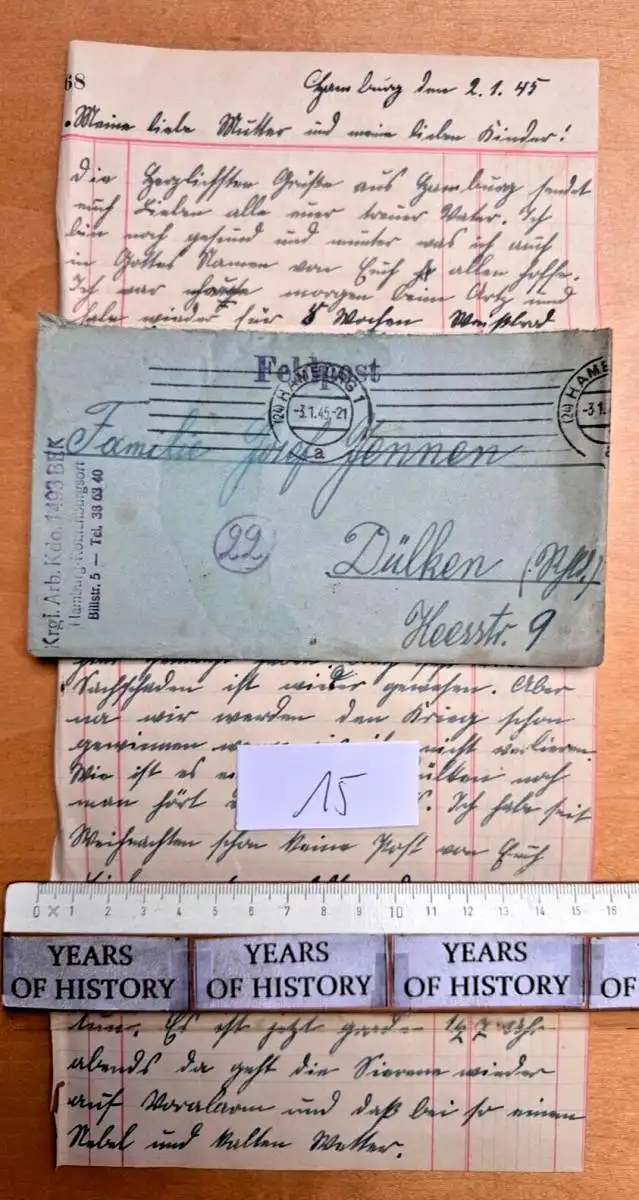 68
Hamburg den 2.1.45
Meine liebe Mutter und meine lieben Kinder!
Die Herzlichsten Grüße aus Hamburg sendet
euch Lieben alle euer treuer Vater. Ich
bin noch gesund und munter was ich auch
in Gottes Namen von Euch allen hoffe.
Ich war morgen beim Artz und
habe wieder für 8 Wochen
Feldpost
(24) HAMBURG 1
-3.1.45.-21
a
(24) HAMB
-3.1.
Familie Josef Jennen
22
Dülken (Rhld.)
Heerstr. 9
Krgf. Arb. Kdo. 1493 BEK
Hamburg-Rothenburgsort
Billstr. 5 — Tel. 38 63 40
Sachschaden ist wieder gewesen. Aber
na wir werden den Krieg schon
gewinnen nicht verlieren.
Wie ist es Dülken noch
man hört Ich habe seit
Weihnachten schon keine Post von Euch
15
0 1 2 3 4 5 6 7 8 9 10 11 12 13 14 15 16
YEARS OF HISTORY
YEARS OF HISTORY
YEARS OF HISTORY
OF
tun. Es ist jetzt grade 1/2 7 Uhr
abends da geht die Sierene wieder
auf Voralarm und daß bei so einem
Nebel und kalten Wetter.